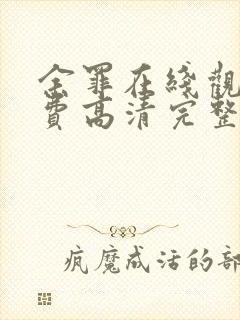 余罪在綫觀
費高清完整
疯魔成活的部